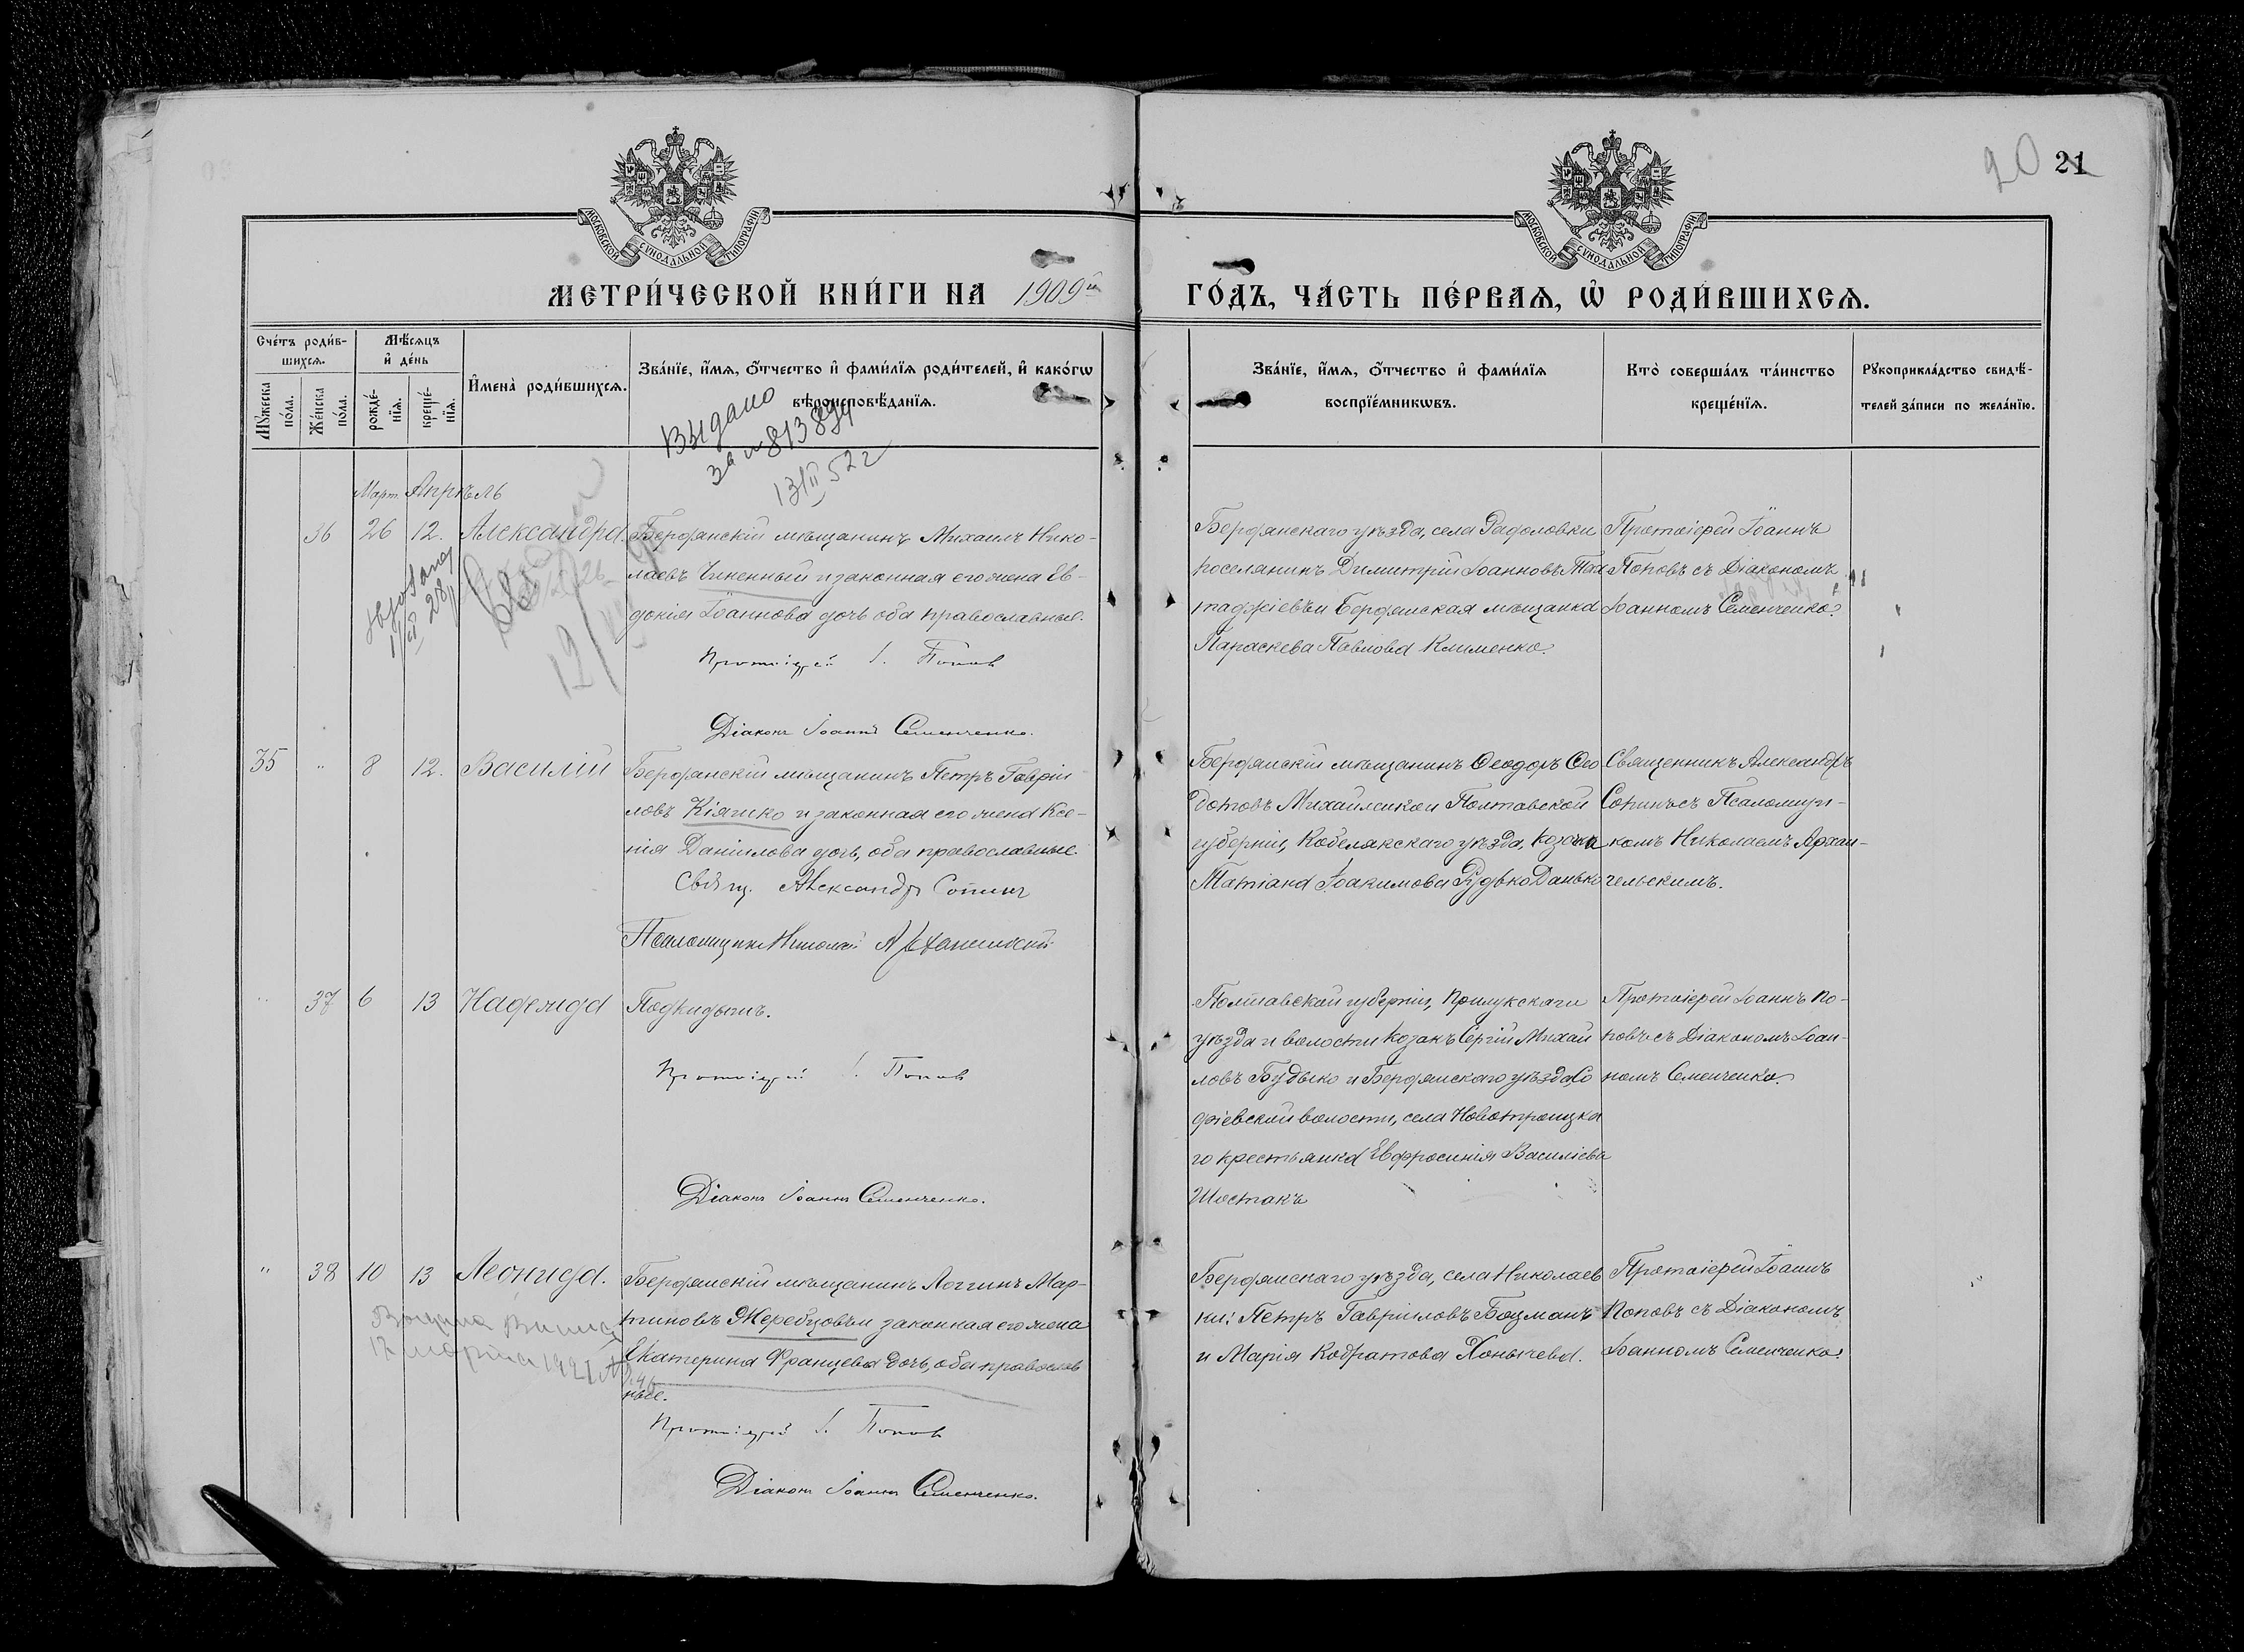 90 21
МОСКОВСКОЙ СѴНОДАЛЬНОЙ ТИПОГРАФІИ
МОСКОВСКОЙ СѴНОДАЛЬНОЙ ТИПОГРАФІИ
МЕТРИ́ЧЕСКОЙ КНИ́ГИ НА 1909й
ГО́ДЪ, ЧА́СТЬ ПЕ́РВАѦ, Ѡ РОДИ́ВШИХСѦ.
Сче́тъ роди́в-
шихсѧ.
Мꙋ́жеска по́ла.
Же́нска по́ла.
Мѣ́сѧцъ
и҆ де́нь
рожде́-
нїѧ.
креще́-
нїѧ.
И҆мена̀ роди́вшихсѧ.
Зва́нїе, и҆́мѧ, ѻ҆́тчество и҆ фами́лїѧ роди́телей, и҆ како́гѡ
вѣроисповѣ́данїѧ.
Зва́нїе, и҆́мѧ, ѻ҆́тчество и҆ фами́лїѧ
воспрїе́мникѡвъ.
Кто̀ соверша́лъ та́инство
креще́нїѧ.
Рꙋкоприкла́дство свидѣ́-
телей за́писи по жела́нїю.
Выдано
за № 813894
13/II 52 г
Март. Апрѣль
36 26 12. Александра.
Бердянскій мѣщанинъ Михаилъ Нико-
лаевъ Чиненный и законная его жена Ев-
докія Іоаннова дочь оба православные.
Протоіерей І. Попов
Діаконъ Іоаннъ Семенченко.
Бердянскаго уѣзда, села Радоловки
поселянинъ Димитрій Іоанновъ Тах
таджіевъ и Бердянская мѣщанка
Параскева Павлова Клименко.
Протоіерей Іоаннъ
Поповъ съ Діакономъ
Іоанномъ Семенченко.
35 " 8 12. Василій
Бердянскій мѣщанинъ Петръ Гаврїи
ловъ Кіяшко и законная его жена Ксе-
нія Даніилова дочь, оба православные.
Свящ. Александръ Сопинъ
Псаломщикъ Николай Архангельскій
Бердянскій мѣщанинъ Ѳеодоръ Ѳео
дотовъ Михайлик и Полтавской
губерніи, Кобелякскаго уѣзда, козачка
Татіана Іоакимова Рудько Данько
Священникъ Александръ
Сопинъ съ Псаломщи-
комъ Николаемъ Архан-
гельскимъ.
" 37 6 13 Надежда
Подкидышъ.
Протоіерей І. Попов
Діаконъ Іоаннъ Семенченко.
Полтавской губерніи, Прилукскаго
уѣзда и волости козакъ Сергій Михаи
ловъ Будько и Бердянскаго уѣзда, Со
фіевской волости, села Новотроицка
го крестьянка Евфросинія Василіева
Шостакъ
Протоіерей Іоаннъ По-
повъ съ Діакономъ Іоан-
номъ Семенченко.
" 38 10 13 Леонида.
Бердянскій мѣщанинъ Логгинъ Мар-
тиновъ Жеребцовъ и законная его жена
Екатерина Францева дочь, оба православ
ные.
Протоіерей І. Попов
Діаконъ Іоаннъ Семенченко.
17 марта 1921
Бердянскаго уѣзда, села Николаев
ки: Петръ Гавріиловъ Боцманъ
и Марія Кодратова Хонычева.
Протоіерей Іоаннъ
Поповъ съ Діакономъ
Іоанномъ Семенченко.